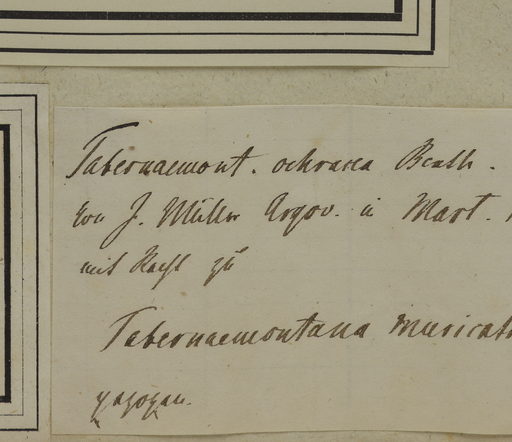 Tabernaemont. ochracea Benth.
von J. Müller Argov. in Mart.
mit Recht zu
Tabernaemontana muricat
gezogen.